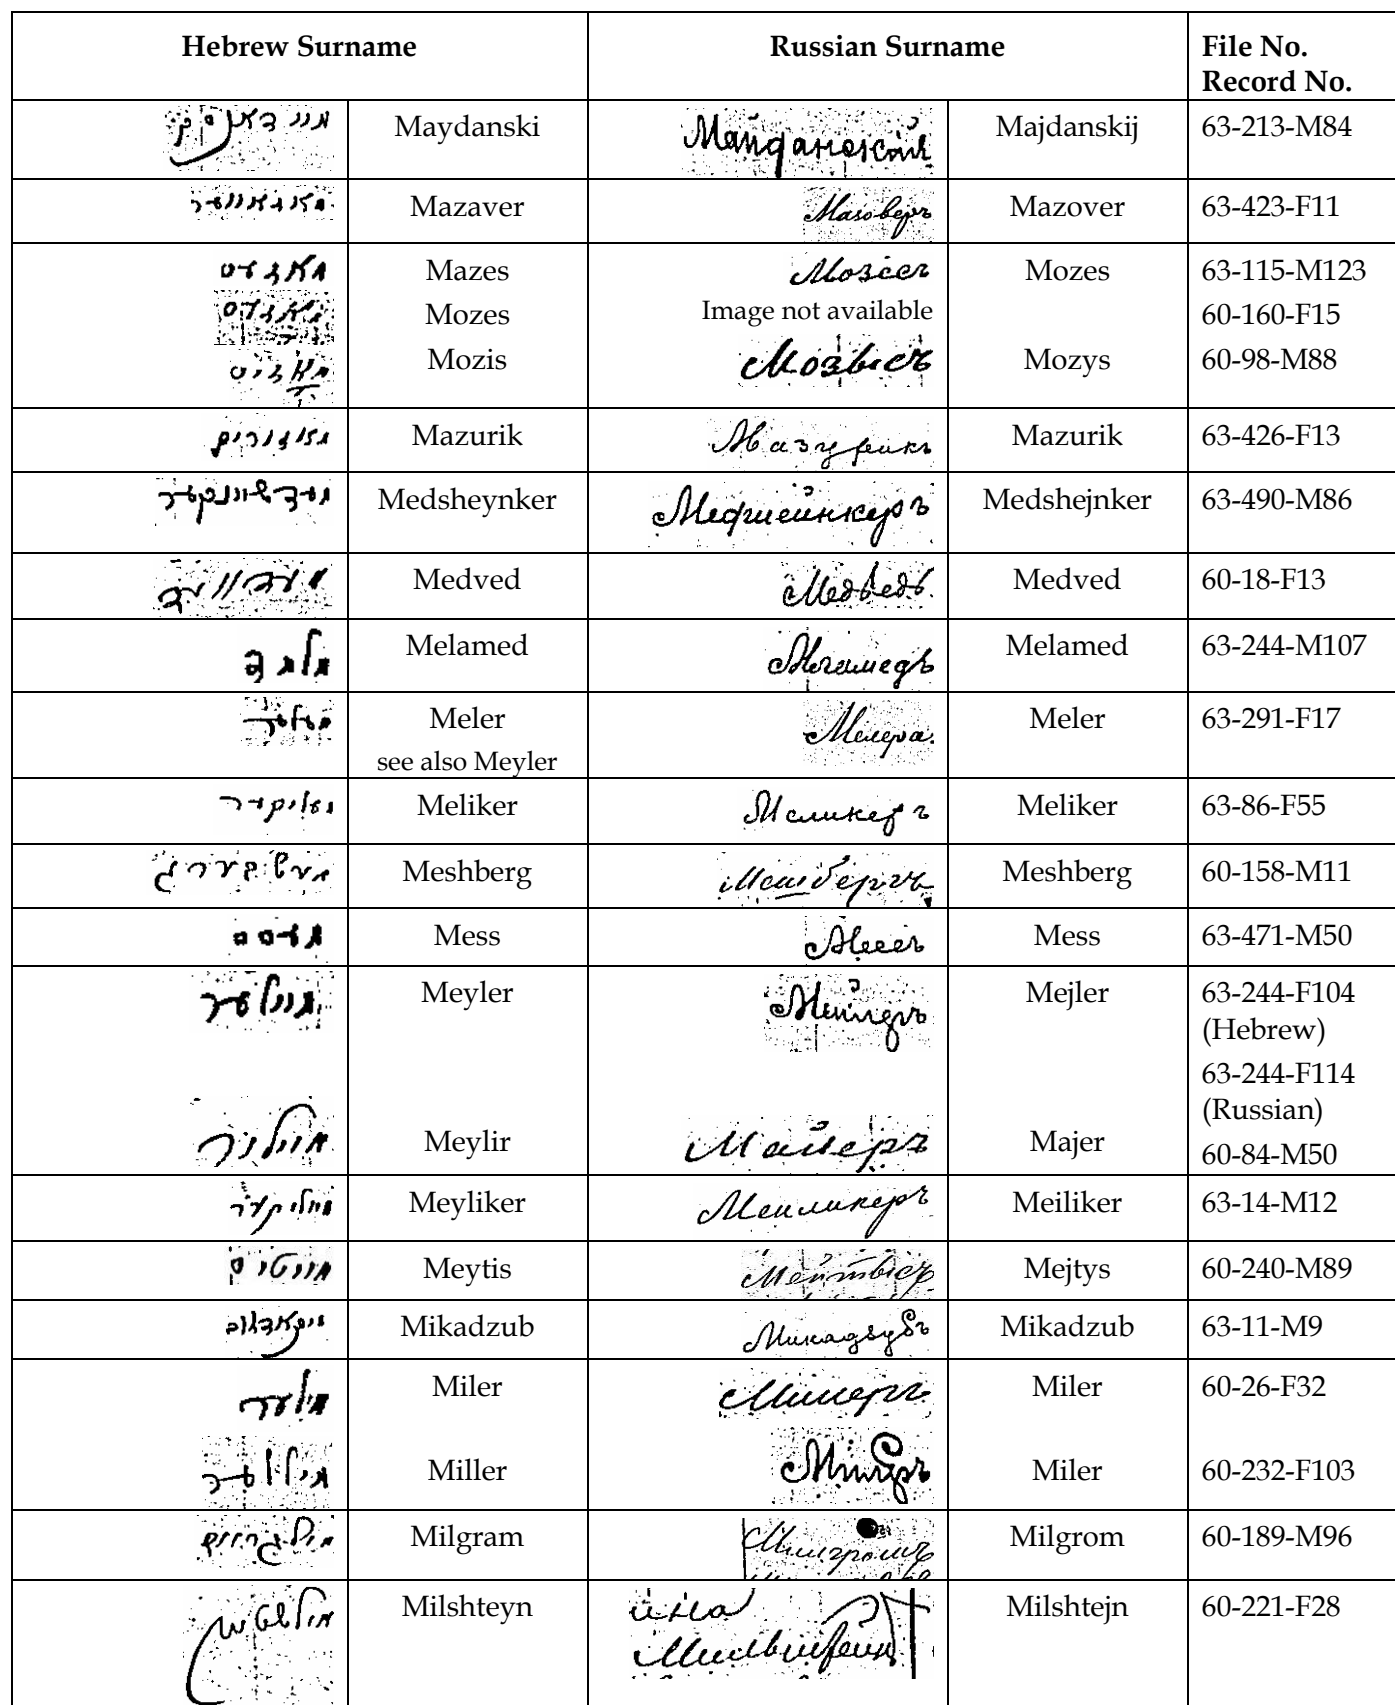 Hebrew Surname Russian Surname File No.
Record No.
מיידאנסקי Maydanski Майданскій Majdanskij 63-213-M84
מאזאווער Mazaver Мазоверъ Mazover 63-423-F11
מאזעס Mazes Мозесъ Mozes 63-115-M123
מאזעס Mozes Image not available 60-160-F15
מאזיס Mozis Мозысъ Mozys 60-98-M88
מאזוריק Mazurik Мазурикъ Mazurik 63-426-F13
מעדשיינקער Medsheynker Медшейнкеръ Medshejnker 63-490-M86
מעדוועד Medved Медведь Medved 60-18-F13
מלמד Melamed Меламедъ Melamed 63-244-M107
מעלער Meler Мелера. Meler 63-291-F17
see also Meyler
מעליקער Meliker Меликеръ Meliker 63-86-F55
מעשבערג Meshberg Мешбергъ Meshberg 60-158-M11
מעסס Mess Мессъ Mess 63-471-M50
מיילער Meyler Мейлеръ Mejler 63-244-F104
(Hebrew)
63-244-F114
(Russian)
מייליר Meylir Майеръ Majer 60-84-M50
מייליקער Meyliker Меиликеръ Meiliker 63-14-M12
מייטיס Meytis Мейтысъ Mejtys 60-240-M89
מיקאדזוב Mikadzub Микадзубъ Mikadzub 63-11-M9
מילער Miler Милеръ Miler 60-26-F32
מיללער Miller Милеръ Miler 60-232-F103
Milgram Милгромъ Milgrom 60-189-M96
מילשטיין Milshteyn Мильштейн Milshtejn 60-221-F28